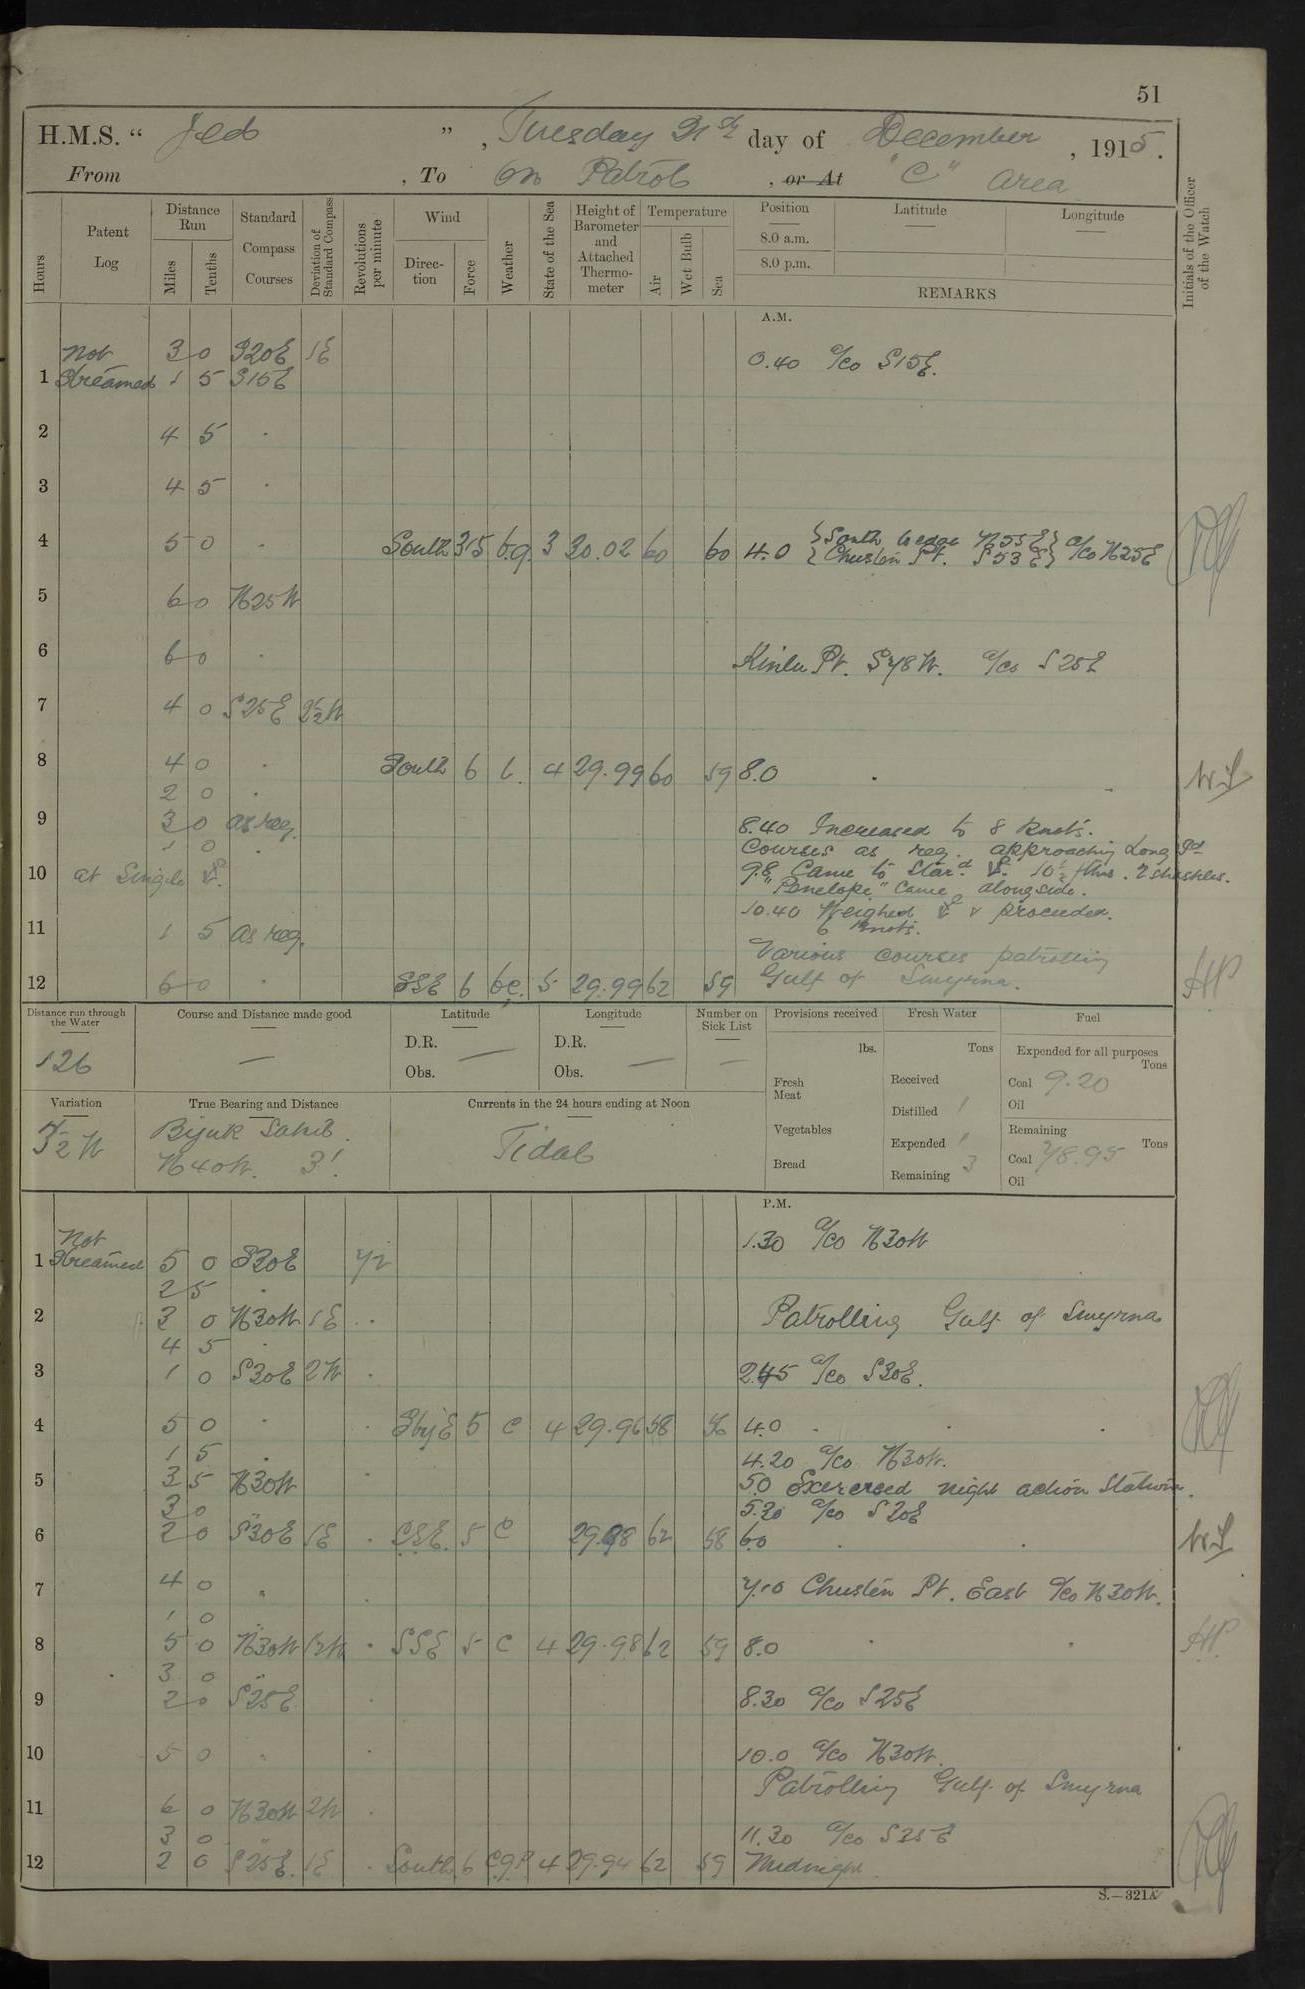 51
H.M.S. " Jed ", Tuesday 21st day of December, 1915.
From , To On Patrol , or At "C" Area
Hours
Patent Log
Distance Run
Miles
Tenths
Standard Compass Courses
Deviation of Standard Compass
Revolutions per minute
Wind
Direction
Force
Weather
State of the Sea
Height of Barometer and Attached Thermometer
Temperature
Air
Wet Bulb
Sea
Position
8.0 a.m.
8.0 p.m.
Latitude
Longitude
REMARKS
Initials of the Officer of the Watch
A.M.
Not 3 0 S20E 1E
1 Streamed 1 5 S15E 0.40 a/co S15E.
2 4 5 "
3 4 5 "
4 5 0 " South 3.5 b.q. 3 30.02 60 60 4.0 South Ledge N55E Chustan Pt. S53E a/co N25E
5 6 0 N25W
6 6 0 " Pt. S78W. a/co S25E
7 4 0 S25E 2½W
8 4 0 " South 6 b. 4 29.99 60 59 8.0
2 0 "
9 3 0 as req. 8.40 Increased to 8 knots.
1 0 " Courses as req. approaching Long Id
10 at Single 9.8 Came to Star'd 10½ fths. 2 shackles.
"Penelope" Came alongside.
10.40 Weighed & proceeded.
11 1 5 as req. 6 knots.
Various courses patrolling
12 6 0 " SSE 6 bc. 5 29.99 62 59 Gulf of Smyrna.
HP
Distance run through the Water
126
Course and Distance made good
—
Latitude
D.R. —
Obs.
Longitude
D.R.
Obs. —
Number on Sick List
—
Provisions received
lbs.
Fresh Meat
Vegetables
Bread
Fresh Water
Tons
Received
Distilled 1
Expended 1
Remaining 3
Fuel
Expended for all purposes
Tons
Coal 9.20
Oil
Remaining
Tons
Coal 78.95
Oil
Variation
True Bearing and Distance
Bijuk Sahib.
N40W. 3'.
Currents in the 24 hours ending at Noon
Tidal
P.M.
Not 1.30 a/co N30W
1 Streamed 5 0 S30E
2 5 "
2 3 0 N30W 1E " Patrolling Gulf of Smyrna
4 5 "
3 1 0 S30E 2W " 2.45 a/co S30E.
4 5 0 " " SbyE 5 c 4 29.96 58 56 4.0
1 5 " 4.20 a/co N30W.
5 3 5 N30W " 5.0 Exercised night action Stations.
3 0 5.30 a/co S20E
6 2 0 S30E 1E " SSE. 5 c 29.98 62 58 6.0
7 4 0 " 7.10 Chustan Pt. East a/co N30W.
1 0 "
8 5 0 N30W 1½W " SSE 5 c 4 29.98 62 59 8.0
HP
3 0 "
9 2 0 S25E " 8.30 a/co S25E
10 5 0 " " 10.0 a/co N30W.
Patrolling Gulf of Smyrna
11 6 0 N30W 2W "
3 0 " 11.30 a/co S25E
12 2 0 S25E. 1E " South 6 c.q.p. 4 29.94 62 59 Midnight.
S.—321A